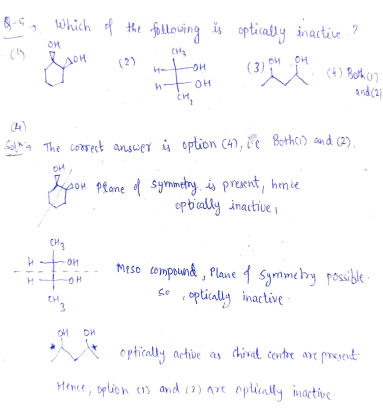 Q-5, Which of the following is optically inactive ?
(1) OH OH (2) CH3 H OH H OH CH2 (3) OH OH (4) Both(1) and(2)
(4)
Soln, The correct answer is option (4), i.e Both(1) and (2).
OH OH Plane of symmetry is present, hence
optically inactive,
CH3
H OH
H OH
CH3
Meso compound, Plane of Symmetry possible.
so , optically inactive.
OH OH
* * optically active as chiral centre are present
Hence, option (1) and (2) are optically inactive.